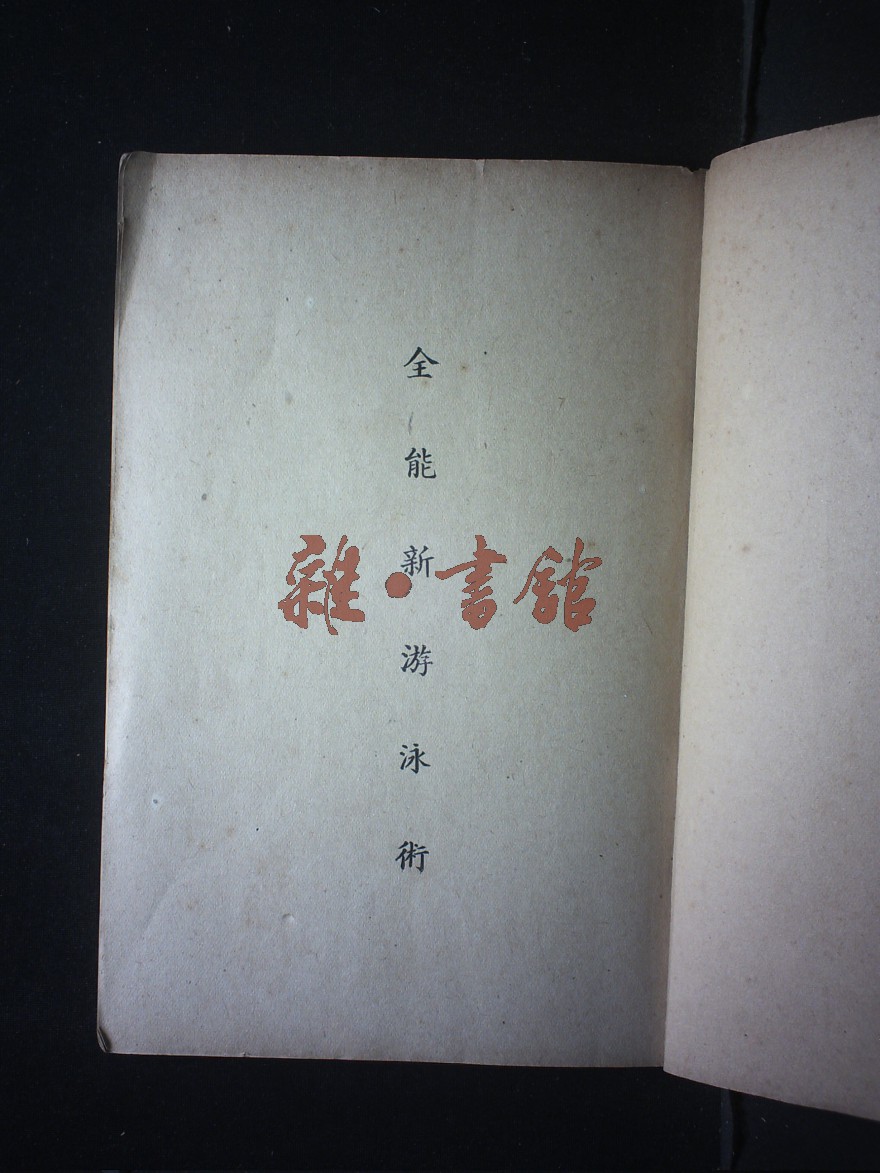 全能新游泳術
雜·書館